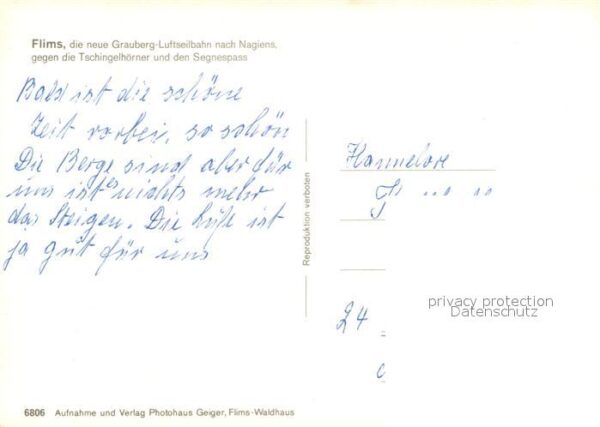 Flims, die neue Grauberg-Luftseilbahn nach Nagiens,
gegen die Tschingelhörner und den Segnespass
Bald ist die schöne
Zeit vorbei, so schön
Die Berge sind aber für
uns ist es nichts mehr
das Steigen. Die Luft ist
ja gut für uns
Reproduktion verboten
Hannelore
24
privacy protection
Datenschutz
6806 Aufnahme und Verlag Photohaus Geiger, Flims-Waldhaus